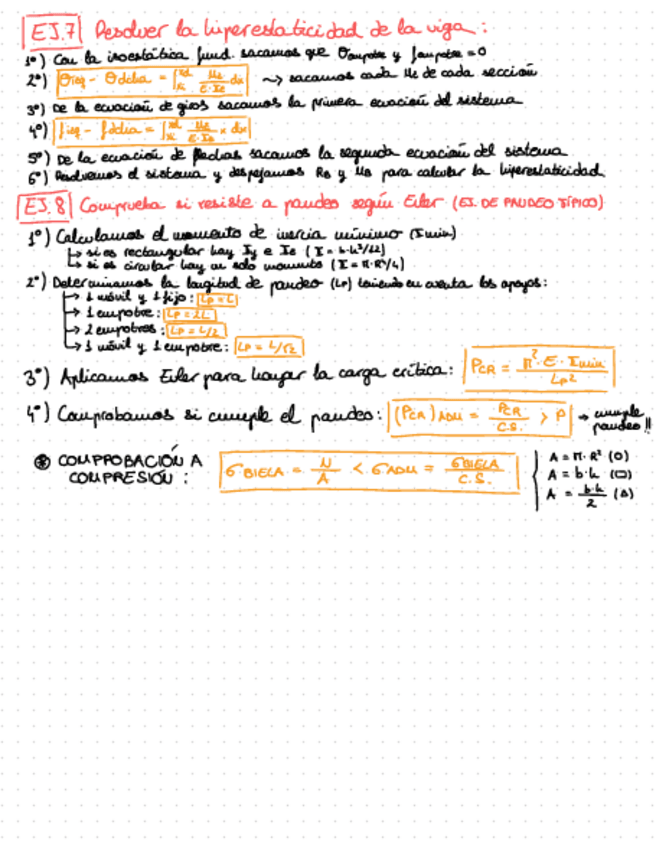 EJ.7 Resolver la hiperestaticidad de la viga:
1º) Con la isoestática fund. sacamos que θempotre y fempotre = 0
2º) θizq - θdcha = ∫ Mz/(E·Iz) dx ⇝ sacamos cada Mz de cada sección
3º) De la ecuación de giros sacamos la primera ecuación del sistema
4º) fizq - fdcha = ∫ Mz/(E·Iz) x dx
5º) De la ecuación de flechas sacamos la segunda ecuación del sistema
6º) Resolvemos el sistema y despejamos RB y MB para calcular la hiperestaticidad
EJ.8 Comprueba si resiste a pandeo según Euler (EJ. DE PANDEO TÍPICO)
1º) Calculamos el momento de inercia mínimo (Imin)
↳ si es rectangular hay Iy e Iz (I = b·h³/12)
↳ si es circular hay un solo momento (I = π·R⁴/4)
2º) Determinamos la longitud de pandeo (Lp) teniendo en cuenta los apoyos:
→ 1 móvil y 1 fijo: Lp = L
→ 1 empotre: Lp = 2L
→ 2 empotres: Lp = L/2
→ 1 móvil y 1 empotre: Lp = L/√2
3º) Aplicamos Euler para hayar la carga crítica: PCR = π²·E·Imin / Lp²
4º) Comprobamos si cumple el pandeo: (PCR)ADM = PCR / C.S. > P → cumple pandeo!!
⊛ COMPROBACIÓN A COMPRESIÓN: σBIELA = N/A < σADM = σBIELA / C.S.
A = π·R² (O)
A = b·h (▭)
A = b·h/2 (△)